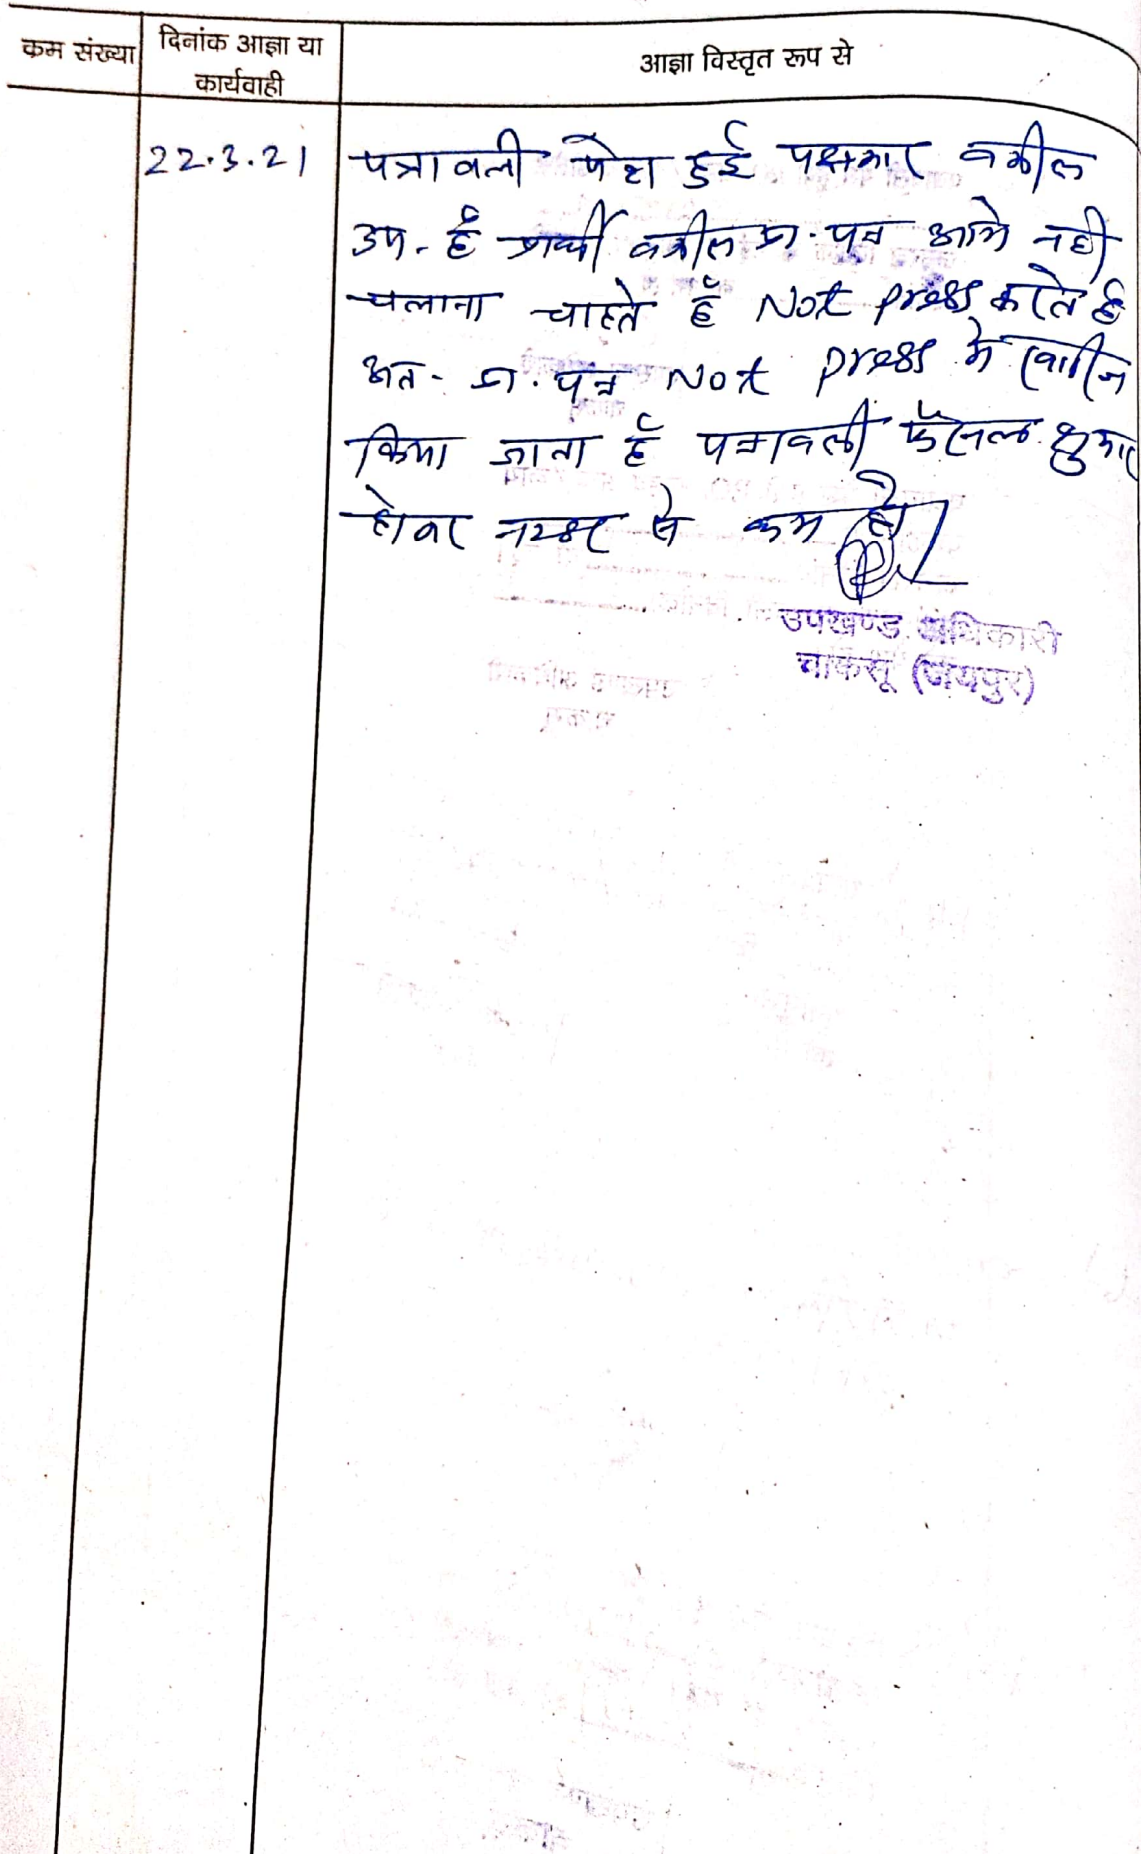 कम संख्या
दिनांक आज्ञा या
कार्यवाही
आज्ञा विस्तृत रूप से
22.3.21
पत्रावली पेश हुई पक्षकार वकील
उप. हैं प्रार्थी वकील प्रा. पत्र आगे नही
चलाना चाहते हैं Not press करते है
अत- प्रा. पत्र Not press मे खारिज
किया जाता हैं पत्रावली फैसल शुमार
होकर नम्बर से कम हो
उपखण्ड अधिकारी
चाकसू (जयपुर)